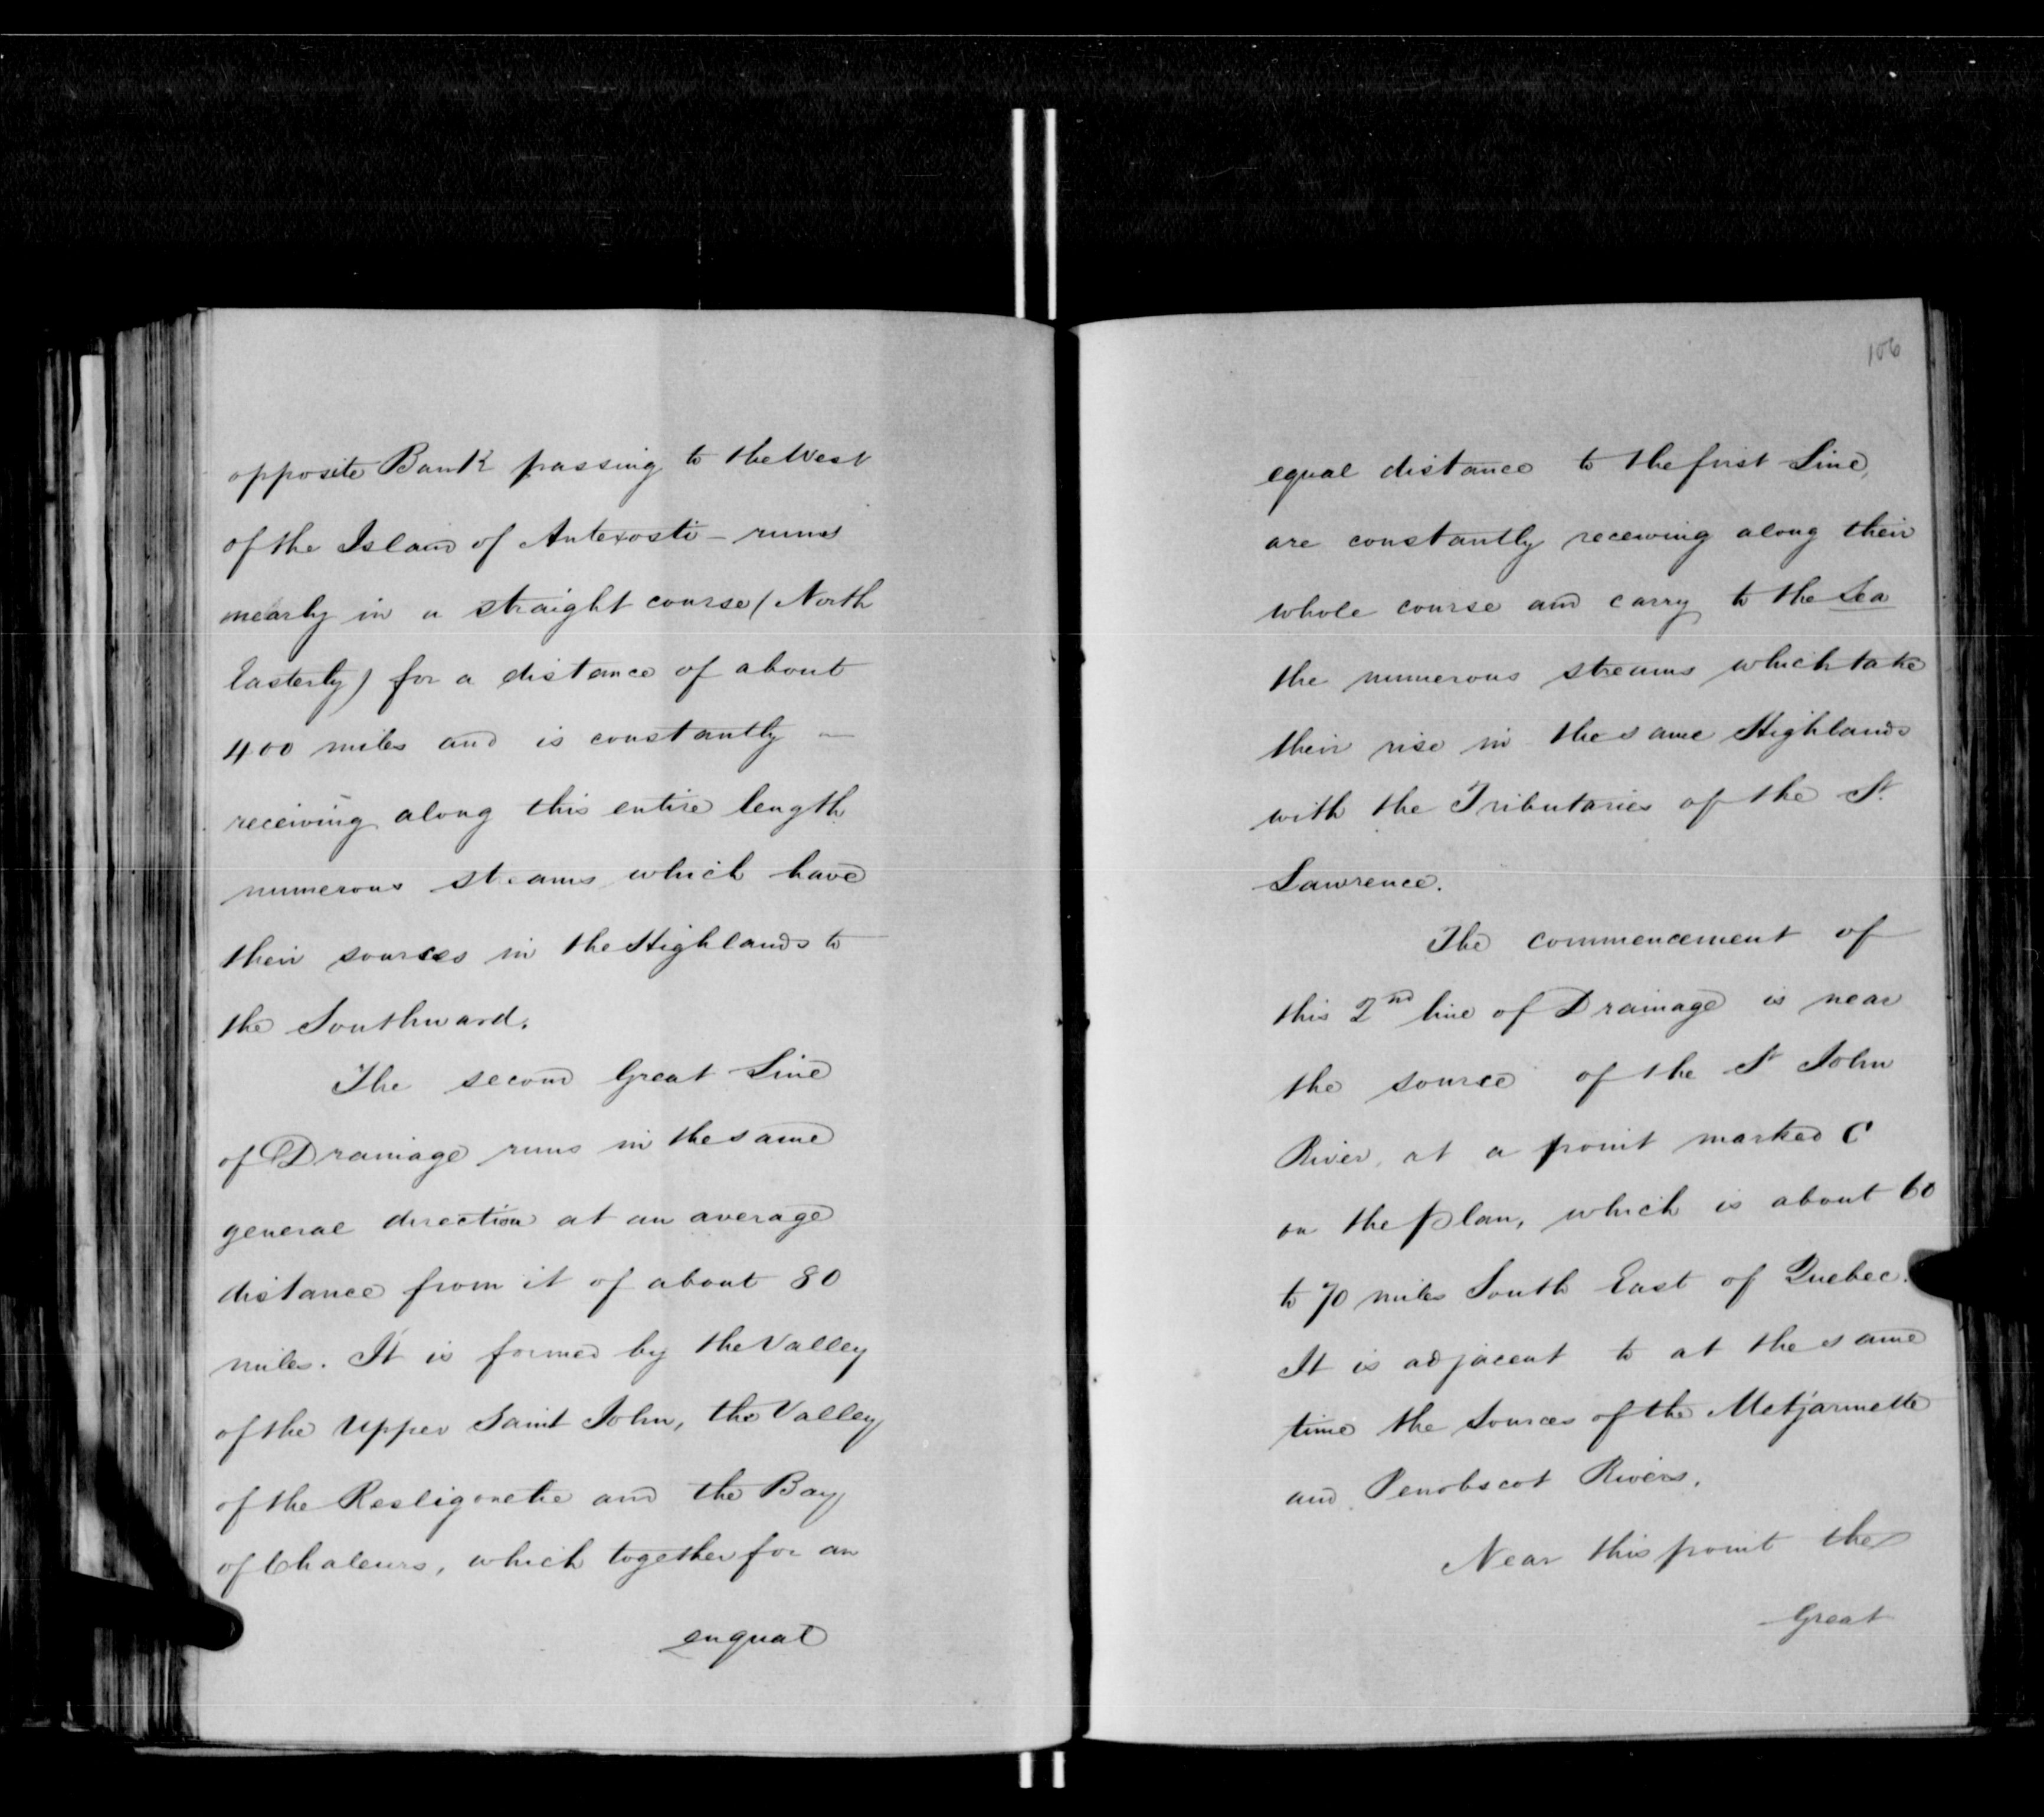 opposite Bank passing to the West
of the Island of Antexosti - runs
nearly in a straight course (North
Easterly) for a distance of about
400 miles and is constantly —
receiving along this entire length
numerous streams which have
their sources in the Highlands to
the Southward.
The second Great Line
of Drainage runs in the same
general direction at an average
distance from it of about 80
miles. It is formed by the Valley
of the Upper Saint John, the Valley
of the Restigouche and the Bay
of Chaleurs, which together for an
enqual
106
equal distance to the first Line,
are constantly receiving along their
whole course and carry to the Sea
the numerous streams which take
their rise in the same Highlands
with the Tributaries of the St.
Lawrence.
The commencement of
this 2nd line of Drainage is near
the source of the St John
River, at a point marked C
on the plan, which is about 60
to 70 miles South East of Quebec.
It is adjacent to at the same
time the sources of the Metjarmette
and Penobscot Rivers.
Near this point the
Great